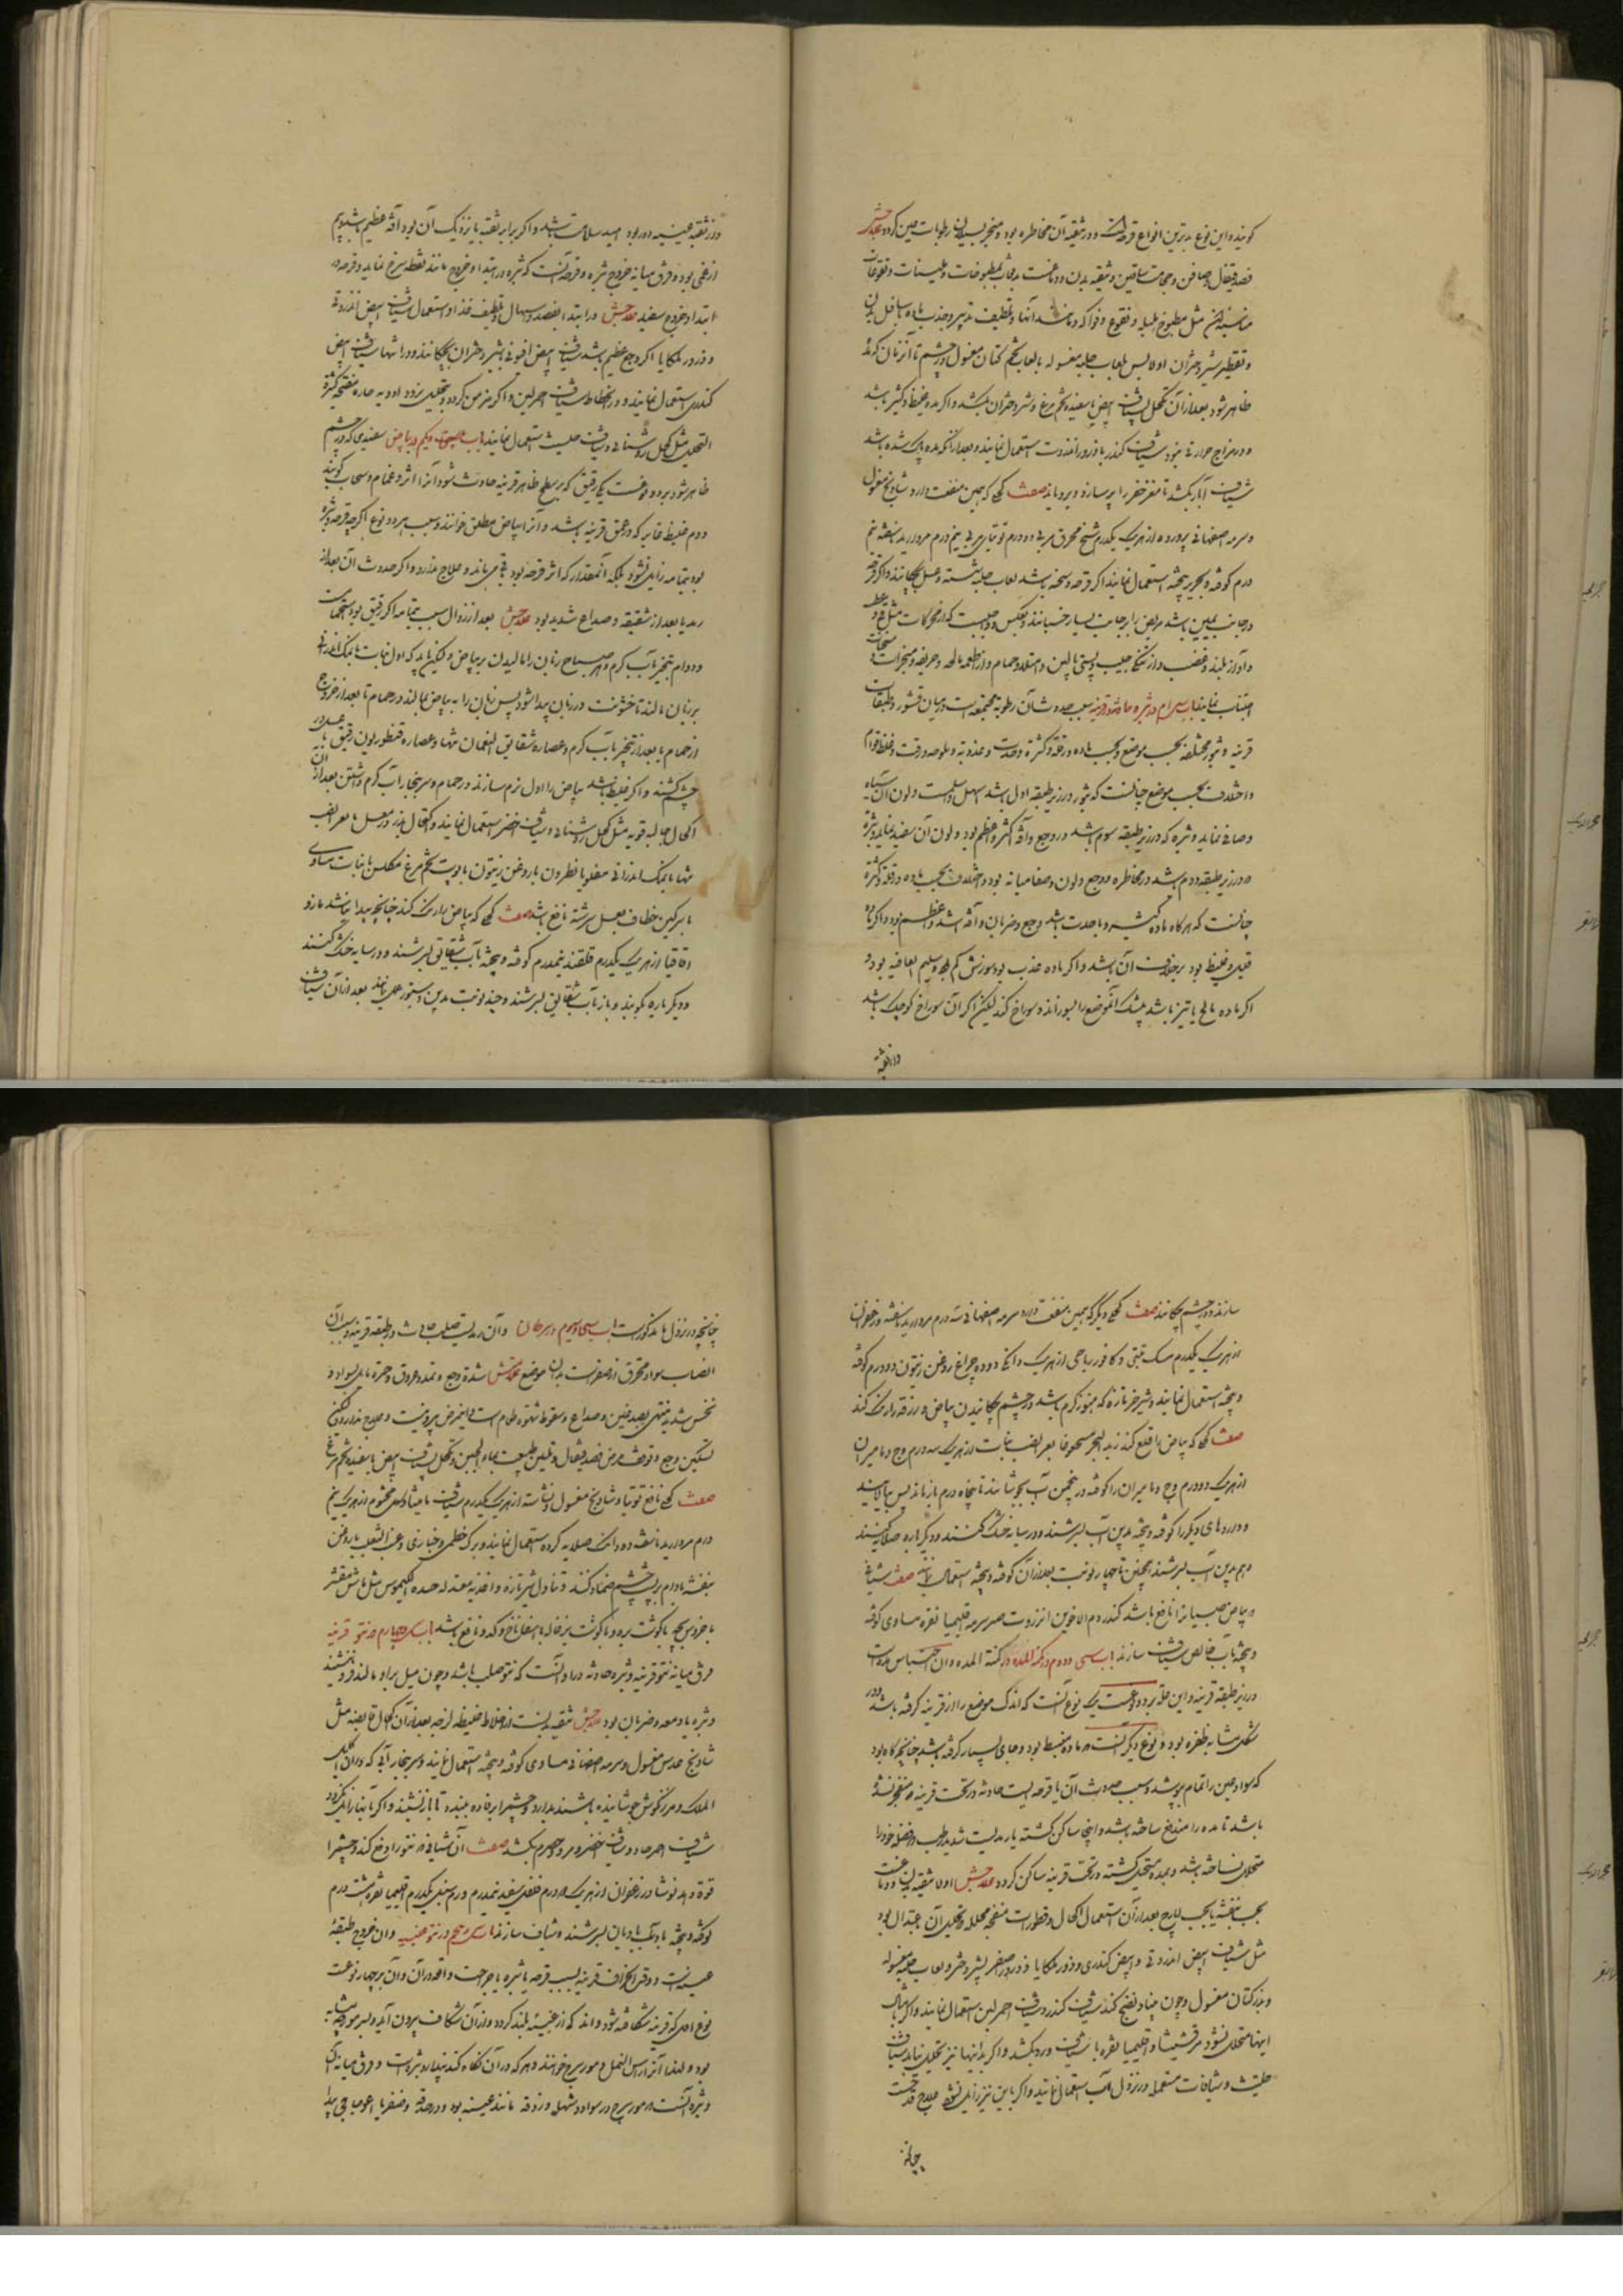 کویند و این نوع بدترین انواع قرحه است و در تنقیه آن مخاطره بود و منجر بسیلان رطوبات عین کردد علاجش
فصد قیفال و صافن و حجامت ساقین و تنقیه بدن و دماغست بمطبوخات و ملینات و نقوعات
مناسبه مثل مطبوخ هلیله و نقوع فواکه و مانند آنها و تلطیف تدبیر و جذب ماده باسافل بدن
و تقطیر شیر دختران اولا پس لعاب حلبه مغسوله یا لعاب تخم کتان مغسول در چشم تا آنزمان که مده
ظاهر شود بعد از آن تکحل بشیاف ابیض با سفیده تخم مرغ و شیر دختران بکشد و اکر مده غلیظ و کثیر باشد
و در مزاج حرارتی نبود شیاف کندر با ذرور انزروت استعمال نمایند و بعد از آنکه مده پاک شده باشد
شیاف آبار بکشد تا مغز حفر را پر سازد و برویاند صفت کحلی که همین منفعت دارد شادنج مغسول
و سرمه اصفهانی پرورده از هریک یکدرم شیح محرق مربی دو درم توتیای مربی نیم درم مروارید ناسفته نیم
درم کوفته و بحریر بیخته استعمال نمایند اکر قرحه وسخه باشد لعاب حلبه شسته و عسل بچکانند و اکر قرحه
در جانب یمین باشد مریض را بر جانب یسار خسبانند و بعکس و واجبست که از حرکات مثل عطسه
و آواز بلند و غضب و از تنکی جیب و پستی بالین و امتلاء و حمام و از اطعمه مالحه و حریفه و مبخرات و مسخنات
اجتناب نمایند باب سی ام در بثره حادثه در قرنیه سبب حدوث آن رطوبة مجتمعه است در میان قشور و طبقات
قرنیه و بثور مختلفه بحسب موضع و بحسب ماده در قلة و کثرة و حدت و عذوبة و ملوحه و رقت و غلظ قوام
و اختلاف بحسب موضع چنانست که بثور در زیر طبقه اول باشد اسهل و اسلمست و لون آن سیاه
و صافی نماید و بثره که در زیر طبقه سوم باشد در وجع و آفة اکثر و اعظم بود و لون آن سفید نماید و بثره
که در زیر طبقه دوم باشد در مخاطره و وجع و لون و صفا میانه بود و اختلاف بحسب ماده در قلة و کثرة
چنانست که هرکاه ماده کثیر و با حدت باشد وجع و ضربان و آفة اشد و اعظم بود و اکر ماده
قلیل و غلیظ بود برخلاف آن باشد و اکر ماده عذب بود سوزش کم و سلیم العاقبه بود و
اکر ماده مالح یا تیز باشد بیشک آنموضع را بسوزاند و سوراخ کند لیکن اکر آن سوراخ کوچک باشد
و از ثقبه
و از ثقبه عینیه دور بود امید سلامت باشد و اکر برابر ثقبه یا نزدیک آن بود آفة عظیم باشد و بیم
از عمی بود و فرق میانه خروج بثره و قرحه آنست که بثره در ابتداء خروج مانند نقطه سرخ نماید و قرحه در
ابتداء خروج سفید علاجش در ابتدا بفصد و اسهال و تلطیف غذا و استعمال شیاف ابیض انزروتی
و ذرور ملکایا اکر وجع عظیم باشد شیاف ابیض افیونی بشیر دختران بچکانند و در انتها شیاف ابیض
کندری استعمال نمایند و در انحطاط شیاف احمر لین و اکر مزمن کردد و بتحلیل نرود ادویه حاره منضجه کثیرة
التحلیل مثل کحل روشنائی و شیاف حلتیت استعمال نمایند باب سی و یکم در بیاض سفیدی که در چشم
ظاهر شود بر دو نوعست یکی رقیق که بر سطح ظاهر قرنیه حادث شود آنرا اثر و غمام و سحاب کویند
دوم غلیظ غایر که در عمق قرنیه باشد و آنرا بیاض مطلق خوانند و سبب هر دو نوع اکر چه قرحه و بثره
بود بتمامه زایل نشود بلکه آنمقدار که اثر قرحه بود باقی می ماند و علاج ندارد و اکر حدوث آن بعد از
رمد یا بعد از شقیقه و صداع شدید بود علاجش بعد از زوال سبب بتمامه اکر رقیق بود استحمامات
و دوام تبخیر بآب کرم و هر صباح زبان را مالیدن بر بیاض و لیکن باید که اول نبات یا نمک اندرانی
بر زبان مالند تا خشونت در زبان پیدا شود پس زبان را به بیاض بمالند در حمام تا بعد از خروج
از حمام یا بعد از تبخیر بآب کرم و عصاره شقایق النعمان تنها و عصاره قنطوریون رقیق با عسل در
چشم کشند و اکر غلیظ باشد بیاض را اول نرم سازند در حمام و سر ببخار آب کرم داشتن بعد از آن
اکحال جالیه قویه مثل کحل روشنائی و شیاف اخضر استعمال نمایند و اکتحال بزر و عسل یا بعر الضب
تنها یا نمک اندرانی مقلو یا نطرون یا روغن زیتون یا پوست تخم مرغ مکلس با نبات مساوی
یا سرکین خطاف بعسل سرشته نافع باشد صفت کحلی که بیاض را رنک کند چنانچه پیدا نباشد مازو
اقاقیا از هریک یکدرم قلقند نیمدرم کوفته و بیخته بآب شقایق بسرشند و در سایه خشک کنند
و دیکر باره بکوبند و باز بآب شقایق بسرشند و چند نوبت بدین دستور عمل نمایند بعد از آن شیاف
سازند و در چشم بچکانند صفت کحلی دیکر که همین منفعت دارد سرمه اصفهانی سه درم مروارید ناسفته و زعفران
از هریک یکدرم مسک تبتی و کافور ریاحی از هریک دانکی دوده چراغ روغن زیتون دو درم کوفته
و بیخته استعمال نمایند و شیر خر تازه که هنوز کرم باشد در چشم چکانیدن بیاض و زرقه را رنک کند
صفت کحلی که بیاض را قلع کند زبد البحر مسحوقا بعر الضب نبات از هریک سه درم وج و مامیران
از هریک دو درم وج و مامیران را کوفته در پنجمن آب بجوشانند تا پنجاه درم باز ماند پس بپالایند
و داروهای دیکر را کوفته و بیخته بدین آب بسرشند و در سایه خشک کنند و دیکر باره صلایه کنند
و هم بدین آب بسرشند همچنین تا چهار نوبت بعد از آن کوفته و بیخته استعمال نمایند صفت شیافی
که بیاض صبیانرا نافع باشد کندر دم الاخوین انزروت صبر سرمه اقلیمیا نقره مساوی کوفته
و بیخته بآب خالص شیاف سازند باب سی و دوم در کمنة المده کمنة المده و آن احتباس مده است
در زیر طبقه قرنیه و این علة بر دو نوعست یک نوع آنست که اندک موضع را از قرنیه کرفته باشد و در
شکل مشابه ظفره بود و نوع دیکر آنست که ماده منبسط بود و جای بسیار کرفته باشد چنانچه کاه بود
که سواد عین را تمام بپوشد و سبب حدوث آن یا قرحه ایست حادثه در تحت قرنیه که منفجر نشده
باشد تا مده را مندفع ساخته باشد و همانجا ساکن کشته یا رمدیست شدید و طبیعت فضله خود را
متحلل نساخته باشد و بمده مستحیل کشته در تحت قرنیه ساکن کردد علاجش اولا تنقیه بدن و دماغست
بحب بنفشه یا بحب ایارج بعد از آن استعمال اکحال و قطورات منضجه محلله و تحلیل آن باعتدال بود
مثل شیاف ابیض انزروتی و ابیض کندری و ذرور ملکایا و ذرور اصفر بشیر دختر و لعاب حلبه مغسوله
و بزر کتان مغسول و چون بنیاد نضج کند شیاف کندر و شیاف احمر لین استعمال نمایند و اکر بامثال
اینها متحلل نشود مرقشیثا و اقلیمیا نقره با شیاف ورد بکشد و اکر بدانها نیز تحلیل نیابد شیاف
حلتیت و شیافات مستعمله در نزول آب استعمال نمایند و اکر باین نیز زایل نشود علاج قدحست
چنانچه
چنانچه در نزول ماء مذکورست باب سی و سیوم در سرطان و آن رمدیست صلب حادث در طبقه قرنیه و سبب آن
انصباب سوداء محترق از صفراست بدان موضع علامتش شدة وجع و تمدد عروق و حمرة مایل بسواد و
نخس شدید منتهی بصدغین و صداع و سقوط شهوة طعام است و اینمرض بی برئست و علاج ندارد لیکن
تسکین وجع و توقف مرض فصد قیفال و تلیین طبیعت بماء الجبن و تکحل بشیاف ابیض با سفیده تخم مرغ
صفت کحلی نافع توتیا و شادنج مغسول و نشاسته از هریک یکدرم شیاف مامیثا و کل مختوم از هریک نیم
درم مروارید ناسفته دو دانک صلایه کرده استعمال نمایند و برک خطمی و خبازی و عنب الثعلب با روغن
بنفشه بادام بر پشت چشم ضماد کنند و تناول شیر تازه و اغذیه معتدله جیده الکیموس مثل ماش مقشر
با خروس بچه یا کوشت بره و یا کوشت بزغاله با اسفاناخ و کدو نافع باشد باب سی و چهارم در نتو قرنیه
فرق میانه نتو قرنیه و بثره حادثه در او آنست که نتو صلب باشد و چون میل بر او مالند فرو ننشیند
و بثره با دمعه و ضربان بود علاجش تنقیه بدنست از اخلاط غلیظه لزجه بعد از آن اکحال قابضه مثل
شادنج عدسی مغسول و سرمه اصفهانی مساوی کوفته و بیخته استعمال نمایند و سر ببخار آبی که در آن اکلیل
الملک و مرزنکوش جوشانیده باشند بدارد و چشم را برفاده ببندد تا باز نشیند و اکر باینها زایل نکردد
شیاف احمر حاد و شیاف اخضر و مر و حصرم بکشد صفت آن شیافی که نتو را دفع کند و چشم را
قوة دهد نوشادر زعفران از هریک دو درم فلفل سفید نیمدرم سنبل یکدرم اقلیمیا نقره هشت درم
کوفته و بیخته بآب بادیان بسرشند و شیاف سازند باب سی و پنجم در نتو عنبیه و آن خروج طبقه
عنبیه است در وقت انخراق قرنیه بسبب قرحه یا بثره یا جراحت واقعه در آن و آن بر چهار نوعست
نوع اول که قرنیه شکافته شود و اندکی از عنبیه بلند کردد و از آن شکاف بیرون آید و بسر مورچه مشابه
بود و لهذا آنرا راس النمل و مورسرج خوانند و هرکه در آن نکاه کند پندارد بثره است و فرق میانه آن
و بثره آنست که مورسرج در سواد و شهله و زرقه مانند عنبیه بود